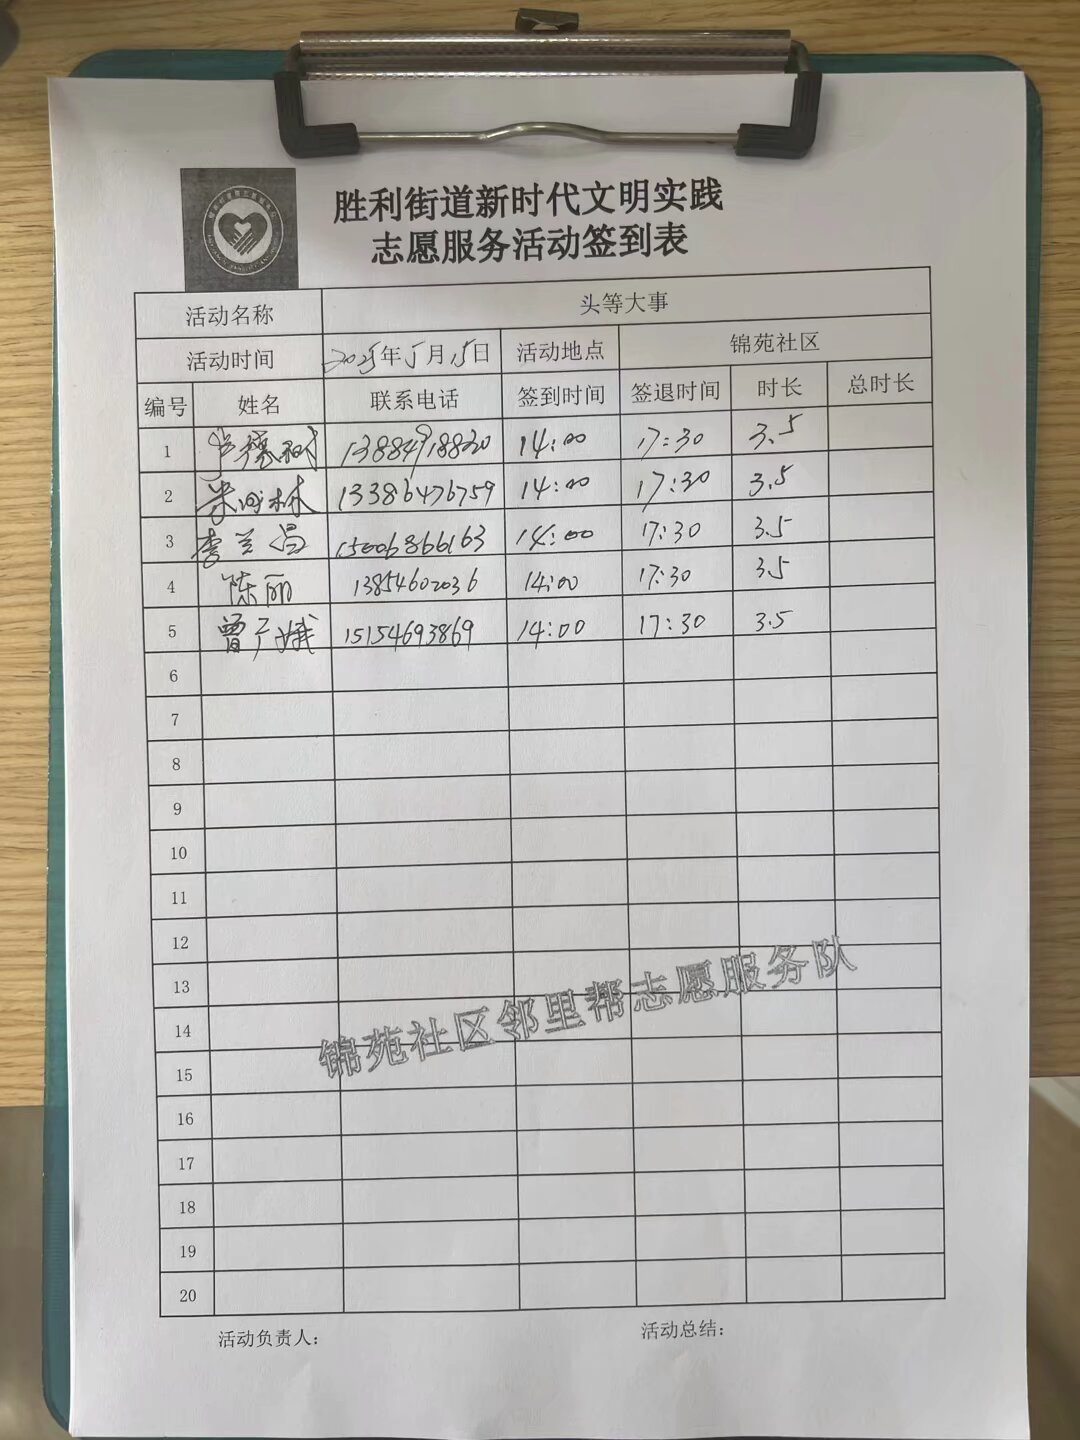 胜利街道新时代文明实践
志愿服务活动签到表
活动名称 头等大事
活动时间 2025年5月15日 活动地点 锦苑社区
编号 姓名 联系电话 签到时间 签退时间 时长 总时长
1 13884918820 14:00 17:30 3.5
2 13386476759 14:00 17:30 3.5
3 李兰昌 15006866163 14:00 17:30 3.5
4 陈丽 13854602036 14:00 17:30 3.5
5 曾广娥 15154693869 14:00 17:30 3.5
6
7
8
9
10
11
12
13
14
15
16
17
18
19
20
锦苑社区邻里帮志愿服务队
活动负责人: 活动总结: